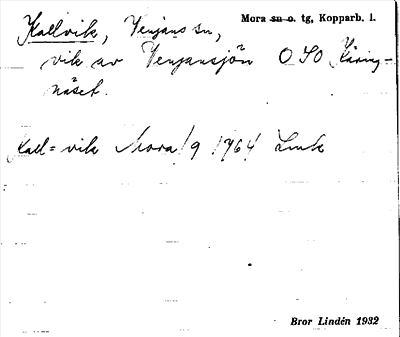 Kallvik, Venjans sn,
Mora sn o. tg, Kopparb. l.
vik av Venjansjön OSO Käring-
näset.
Kall=vik Mora/9 1764 Lmk
Bror Lindén 1932